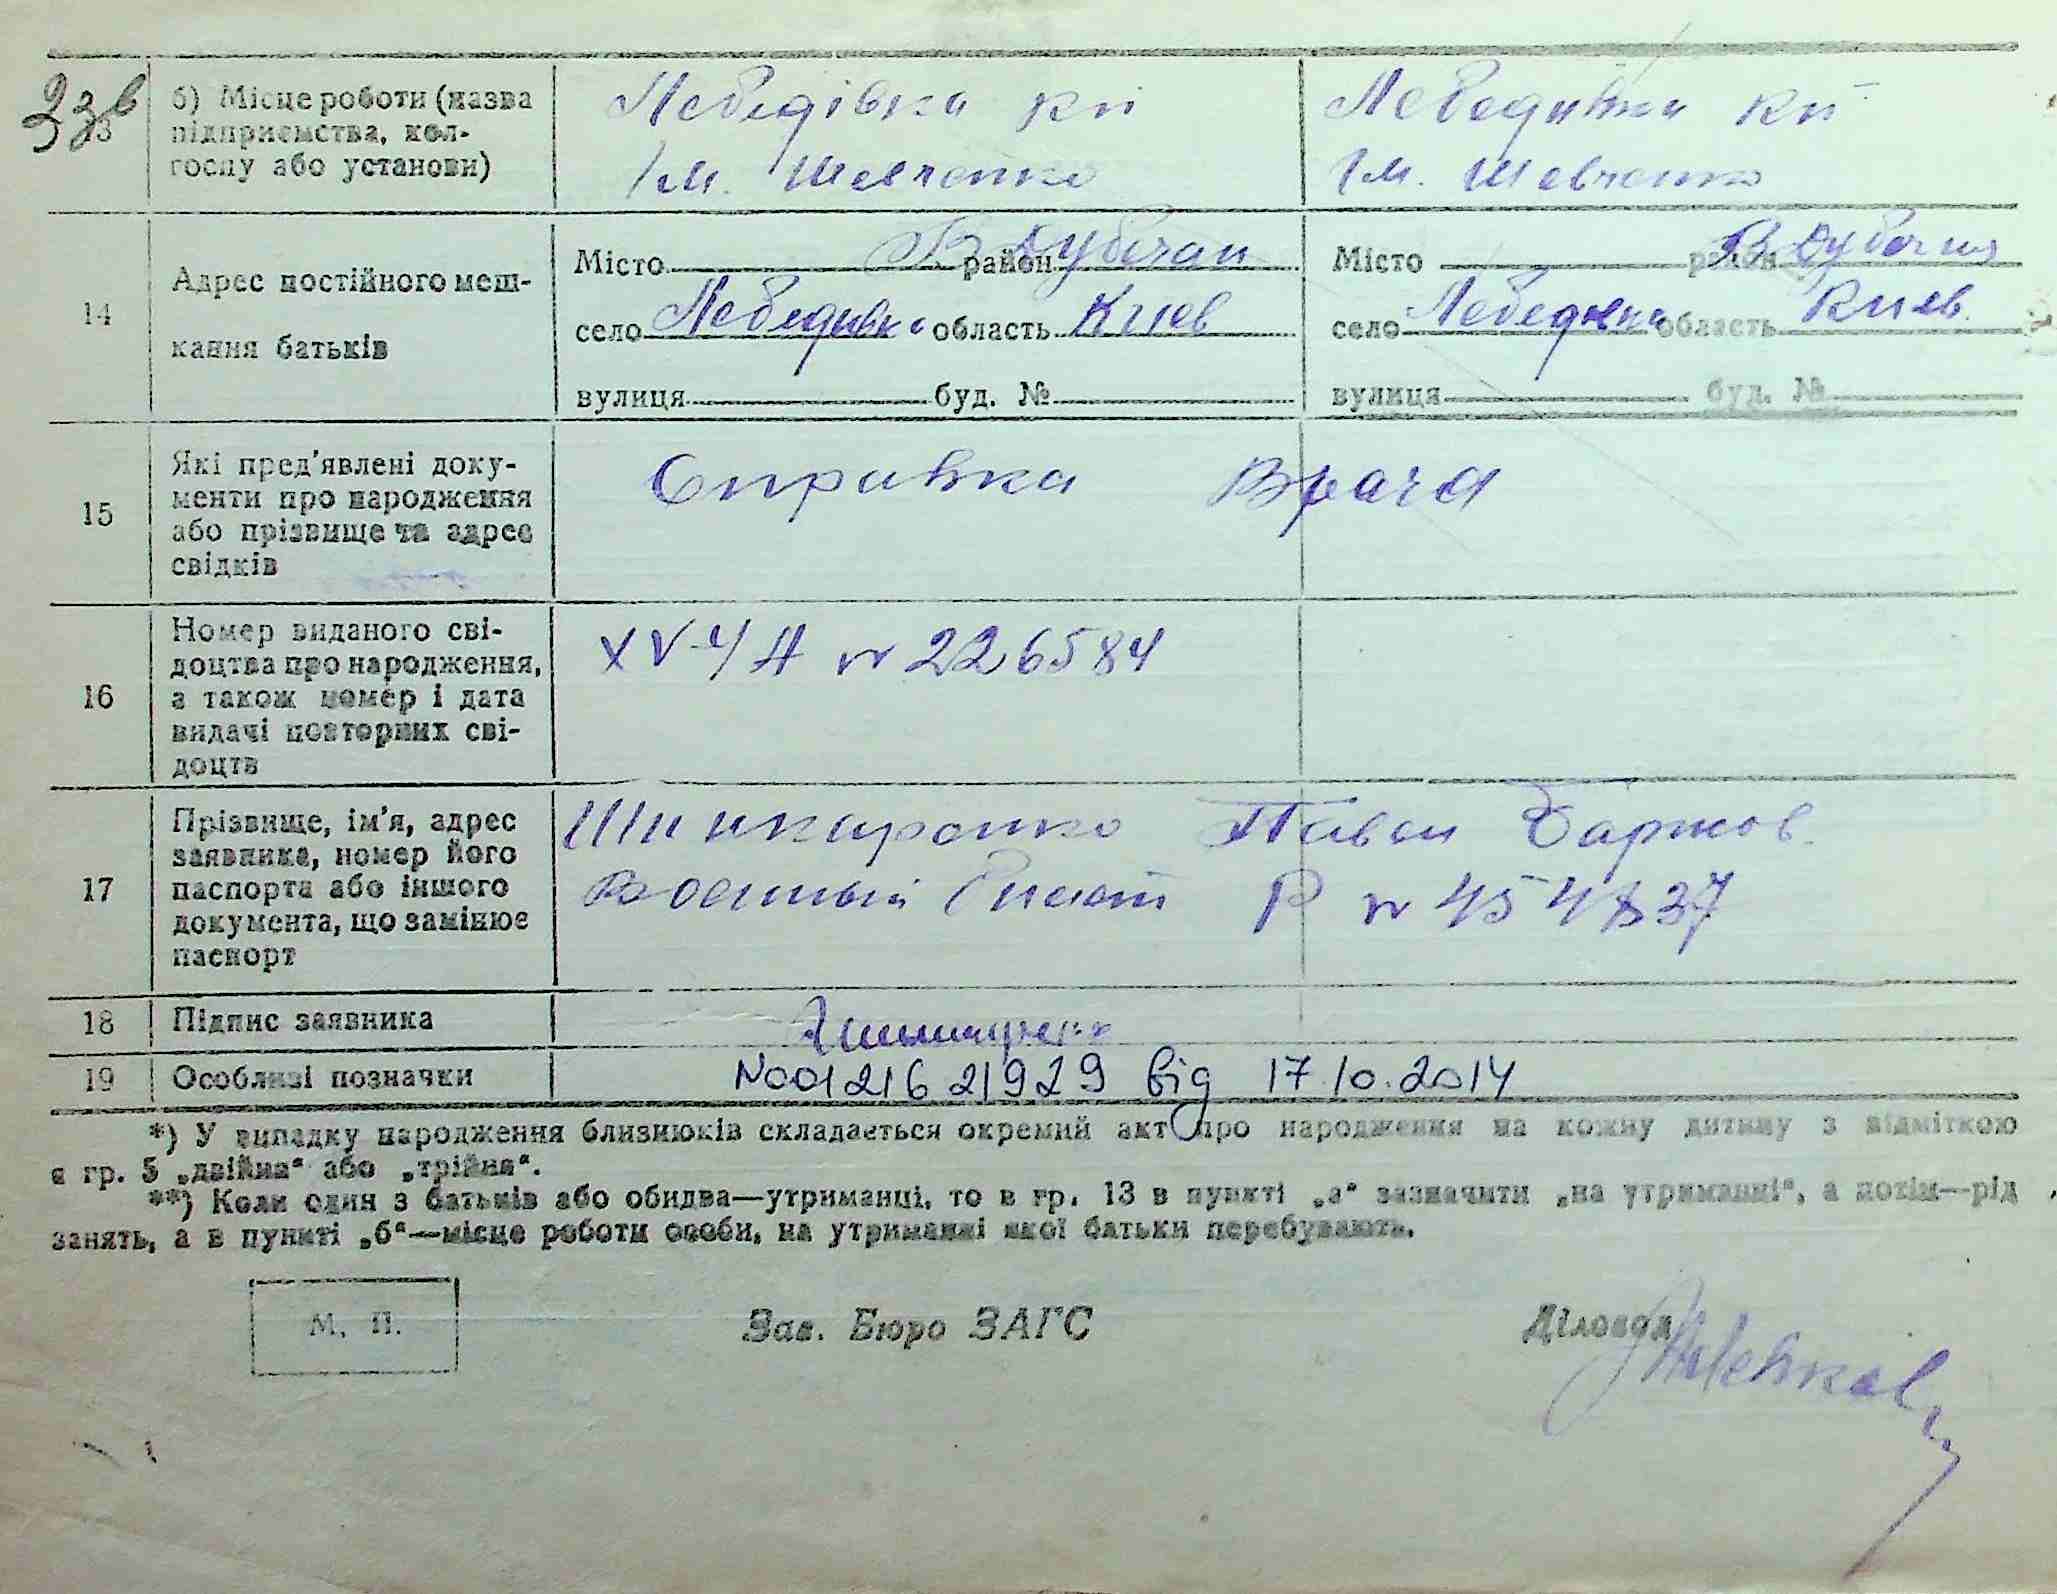 33в
13
б) Місце роботи (назва
підприємства, кол-
госпу або установи)
Лебедівка кп
Ім. Шевченко
Лебедивка кп
Ім. Шевченко
14
Адрес постійного меш-
кання батьків
Місто район В Дубечан
село Лебедивка область Киев
вулиця буд. №
Місто район В Дубечня
село Лебедивка область Киев.
вулиця буд. №
15
Які пред'явлені доку-
менти про народження
або прізвище та адрес
свідків
Справка Врача
16
Номер виданого сві-
доцтва про народження,
а також номер і дата
видачі повторних сві-
доцтв
XV-ЧА № 226584
17
Прізвище, ім'я, адрес
заявника, номер його
паспорта або іншого
документа, що замінює
паспорт
Шинкаренко Павел
Военный билет Р № 454837
18 Підпис заявника
19 Особливі позначки №00121621929 від 17.10.2014
*) У випадку народження близнюків складається окремий акт про народження на кожну дитину з відміткою
в гр. 5 „двійня“ або „трійня“.
**) Коли один з батьків або обидва—утриманці, то в гр. 13 в пункті „а“ зазначити „на утриманні“, а потім—рід
занять, а в пункті „б“—місце роботи особи, на утриманні якої батьки перебувають.
М. П.
Зав. Бюро ЗАГС
Діловод